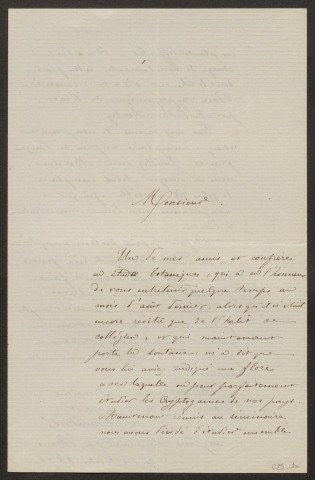 Monsieur
Un de mes amis et confrères
en études botaniques, qui a eu l'honneur
de vous entretenir quelque temps au
mois d'août dernier, alors qu'il n'était
encore revêtu que de l'habit de
collégien, et qui maintenant
porte la soutane m'a dit que
vous lui aviez indiqué une flore
avec laquelle on peut parfaitement
étudier les Cryptogames de nos pays.
Maintenant réunis au séminaire
nous avons décidé d'étudier ensemble